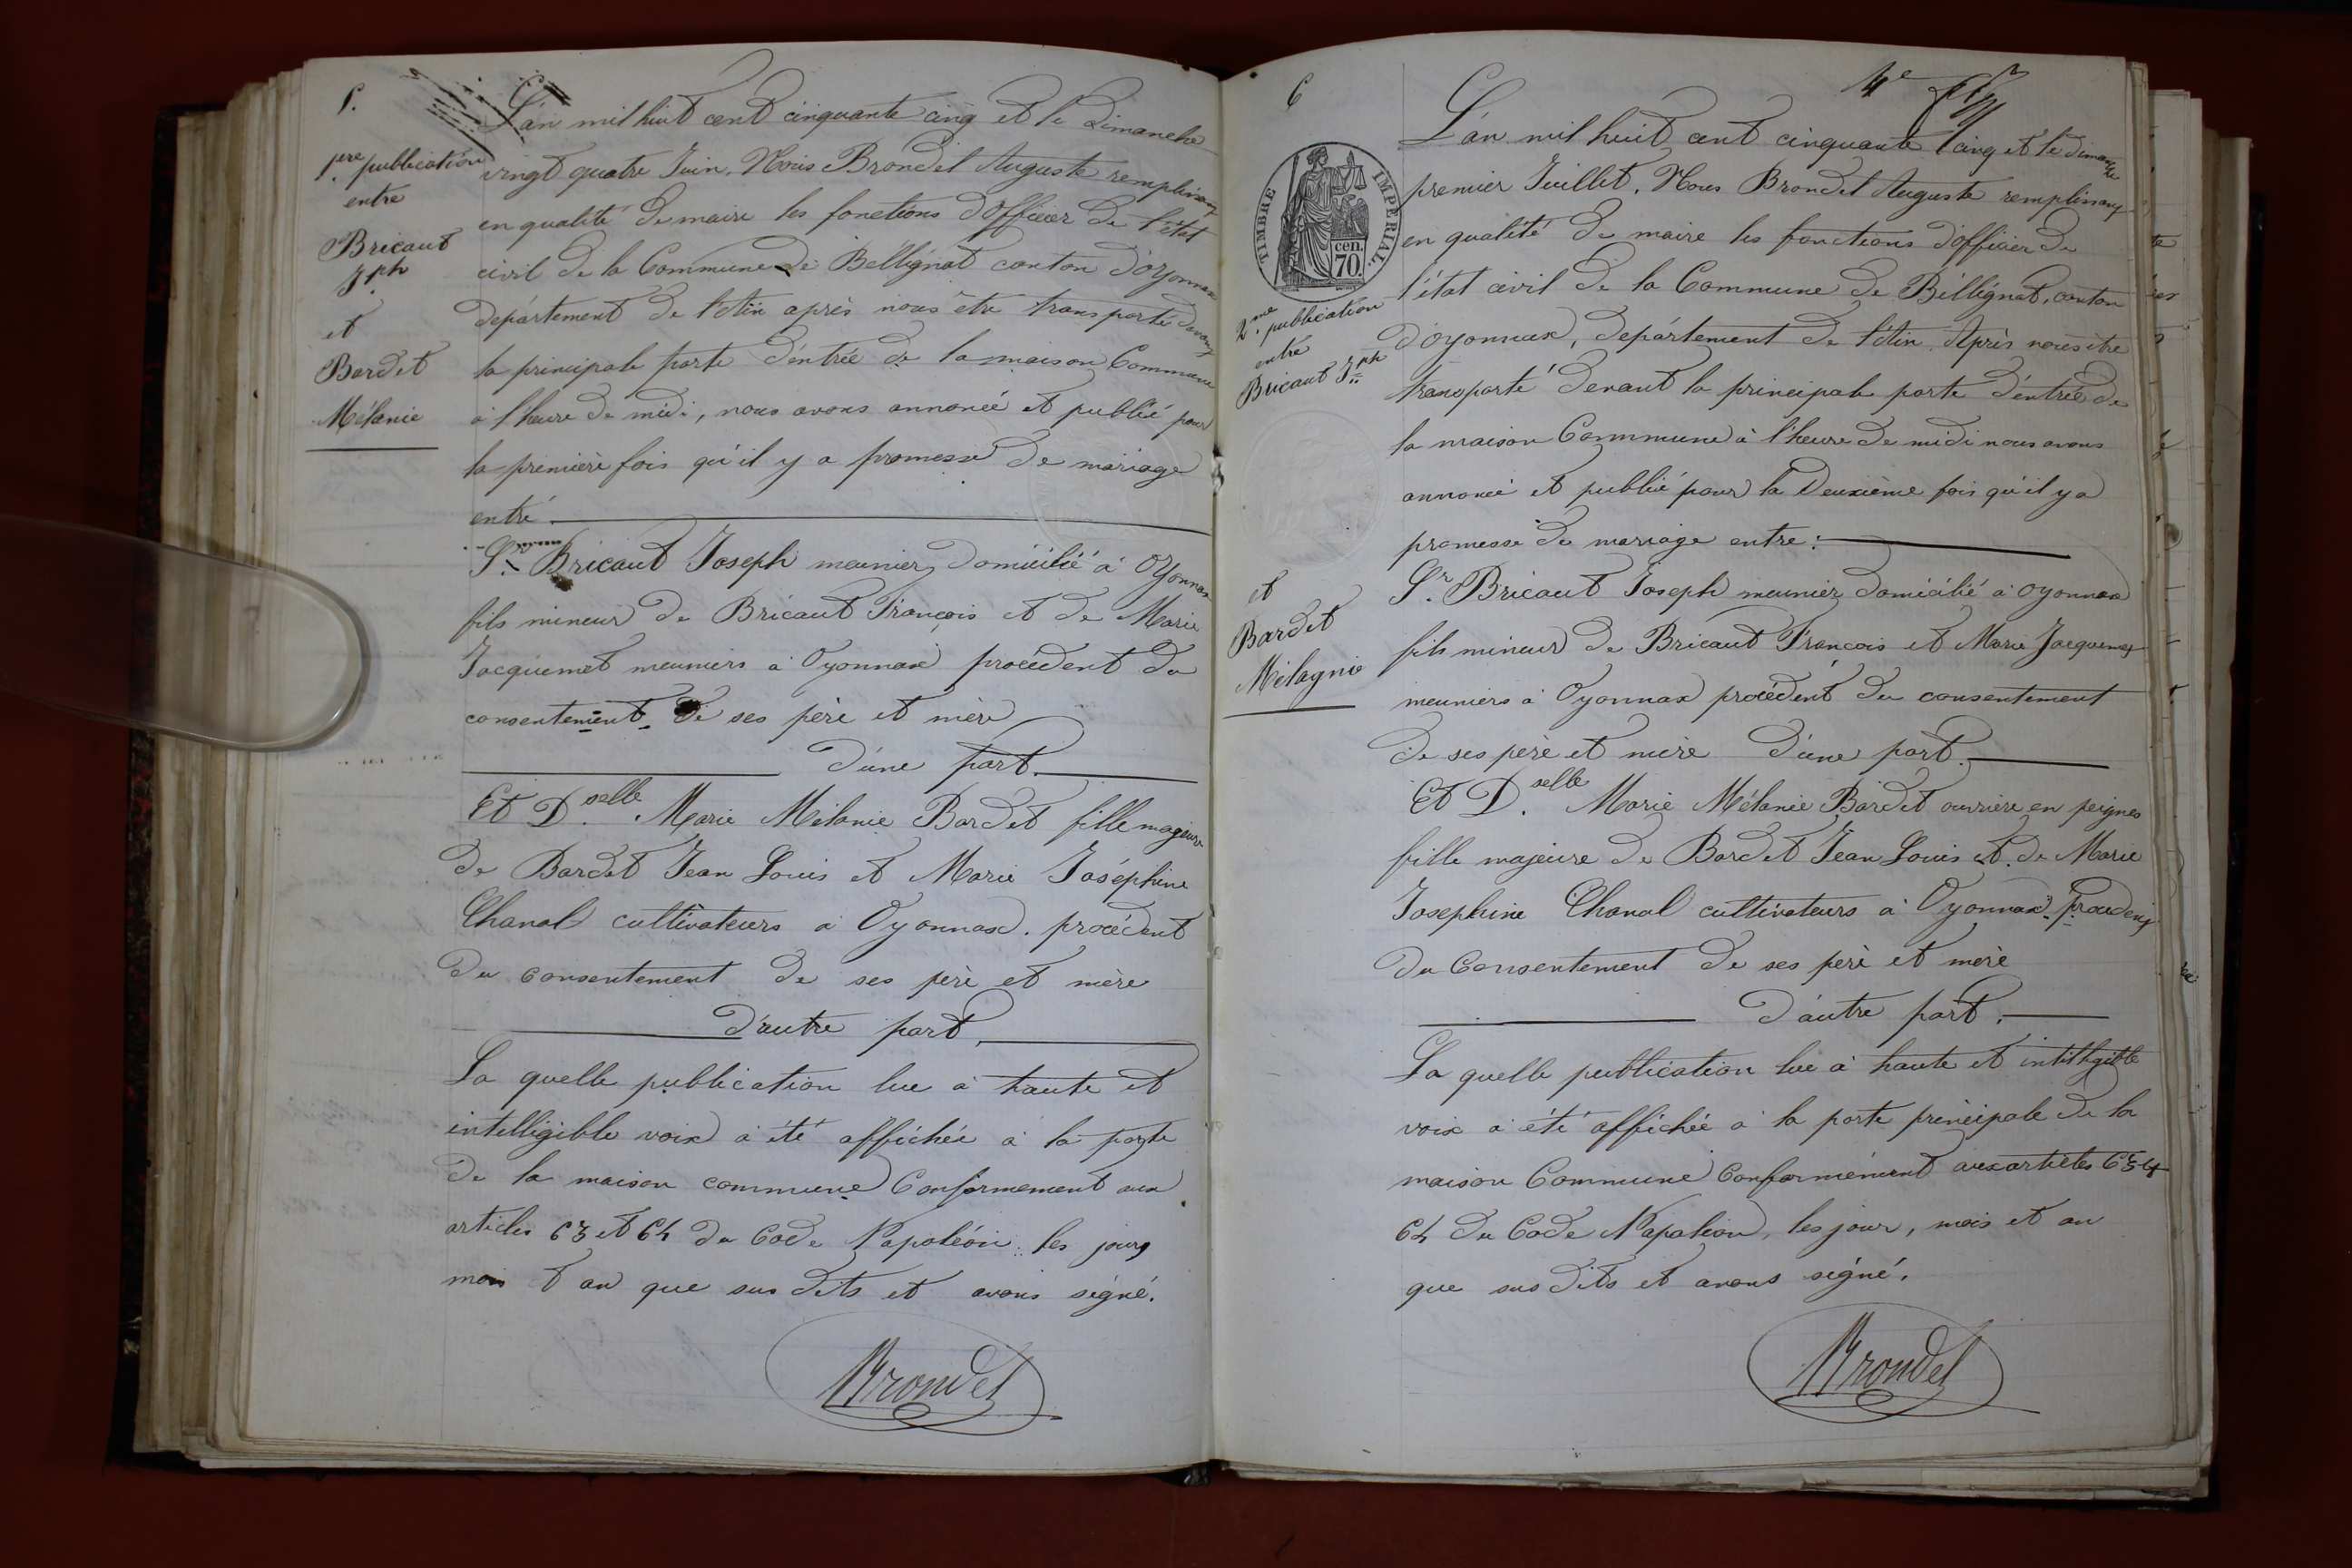 5.
1ère publication
entre
Bricaut
Jph
et
Bardet
Mélanie
L'an mil huit cent cinquante cinq et le Dimanche
vingt quatre Juin, Nous Brondel Auguste remplissant
en qualité de maire les fonctions d'officier de l'état
civil de la Commune de Bellignat canton d'oyonnax
département de l'Ain après nous être transporté devant
la principale porte d'entrée de la maison Commune
à l'heure de midi, nous avons annoncé et publié pour
la première fois qu'il y a promesse de mariage
entre
Sr. Bricaut Joseph meunier, domicilié à Oyonnax
fils mineur de Bricaut François et de Marie
Jacquemet meuniers à Oyonnax procédent du
consentement de ses père et mère
d'une part.
Et D.selle Marie Mélanie Bardet fille majeure
de Bardet Jean Louis et Marie Joséphine
Chanal cultivateurs à Oyonnax. procédent
du consentement de ses père et mère
d'autre part,
La quelle publication lue à haute et
intelligible voix a été affichée à la porte
de la maison commune Conformement aux
articles 63 et 64 du Code Napoléon : les jours
mois et an que sus dits et avons signé.
Brondel
6
4e
TIMBRE IMPÉRIAL
cen.
70.
2.me publication
entre
Bricaut Jph
et
Bardet
Mélagnie
L'an mil huit cent cinquante cinq et le dimanche
premier Juillet, Nous Brondel Auguste remplissant
en qualité de maire les fonctions d'officier de
l'état civil de la Commune de Béllignat, canton
d'oyonnax, département de l'Ain, Après nous être
transporté devant la principale porte d'entrée de
la maison Commune à l'heure de midi nous avons
annoncé et publié pour la Deuxième fois qu'il y a
promesse de mariage entre :
Sr. Bricaut Joseph meunier, domicilié à oyonnax
fils mineur de Bricaut François et Marie Jacquemet
meuniers à Oyonnax procédent du consentement
de ses père et mère d'une part.
Et D.selle Marie Mélanie Bardet ouvrière en peignes
fille majeure de Bardet Jean Louis et de Marie
Josephine Chanal cultivateurs à Oyonnax. Procédent
du Consentement de ses père et mère
d'autre part.
La quelle publication lue à haute et intilligible
voix a été affichée à la porte principale de la
maison Commune Conformément aux articles 63 et
64 du Code Napoléon, les jour, mois et an
que sus dits et avons signé.
Brondel